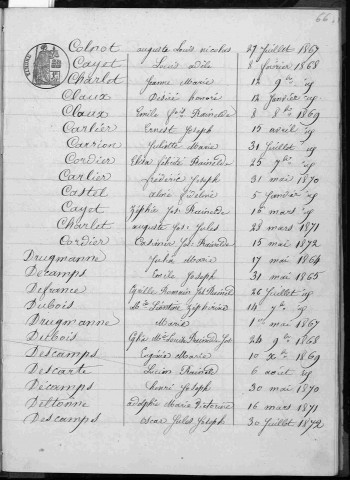 66
Colpot auguste Louis nicolas 27 Juillet 1867
Cayet Louis Adèle 8 février 1868
Charlot Jeanne Marie 12 9bre id
Claux Désiré honoré 12 Janvier id
Claux Emile Fçs Rainelde 8 8bre 1869
Carlier Ernest Joseph 15 avril id
Carrion Juliette Marie 31 Juillet id
Cordier Elisa félicité Rainelde 25 7bre id
Carlier frédéric Joseph 31 mai 1870
Castel aline 5 Janvier id
Cayet Zéphir Jos: Rainelde 16 mars id
Charlet auguste Jos: Jules 23 mars 1871
Cordier Casimir Jos: Rainelde 15 mai 1872
Drugmanne Julia Marie 17 mai 1864
Décamps Emile Joseph 31 mai 1865
Defrance Cyrille Romain Jos 26 Juillet id
Dubois Mie Léontine Zéphirine 14 7bre id
Drugmanne Maria 1er mai 1867
Dubois Mie Louise Jos 24 9bre 1868
Descamps Eugénie Marie 10 Xbre 1869
Descarte Lucien Rainelde 6 août id
Décamps henri Joseph 30 mai 1870
Deltonne adolphe Marie Victorine 16 mars 1871
Descamps oscar Jules Joseph 30 Juillet 1872